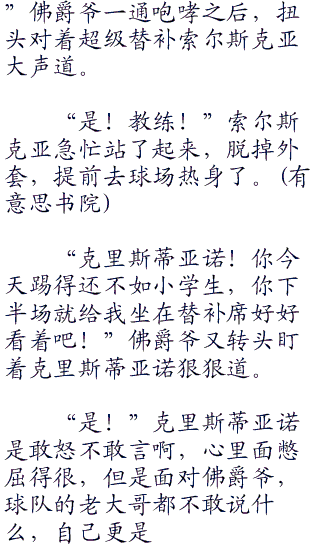 ”佛爵爷一通咆哮之后，扭
头对着超级替补索尔斯克亚
大声道。
“是！教练！”索尔斯
克亚急忙站了起来，脱掉外
套，提前去球场热身了。(有
意思书院)
“克里斯蒂亚诺！你今
天踢得还不如小学生，你下
半场就给我坐在替补席好好
看着吧！”佛爵爷又转头盯
着克里斯蒂亚诺狠狠道。
“是！”克里斯蒂亚诺
是敢怒不敢言啊，心里面憋
屈得很，但是面对佛爵爷，
球队的老大哥都不敢说什
么，自己更是